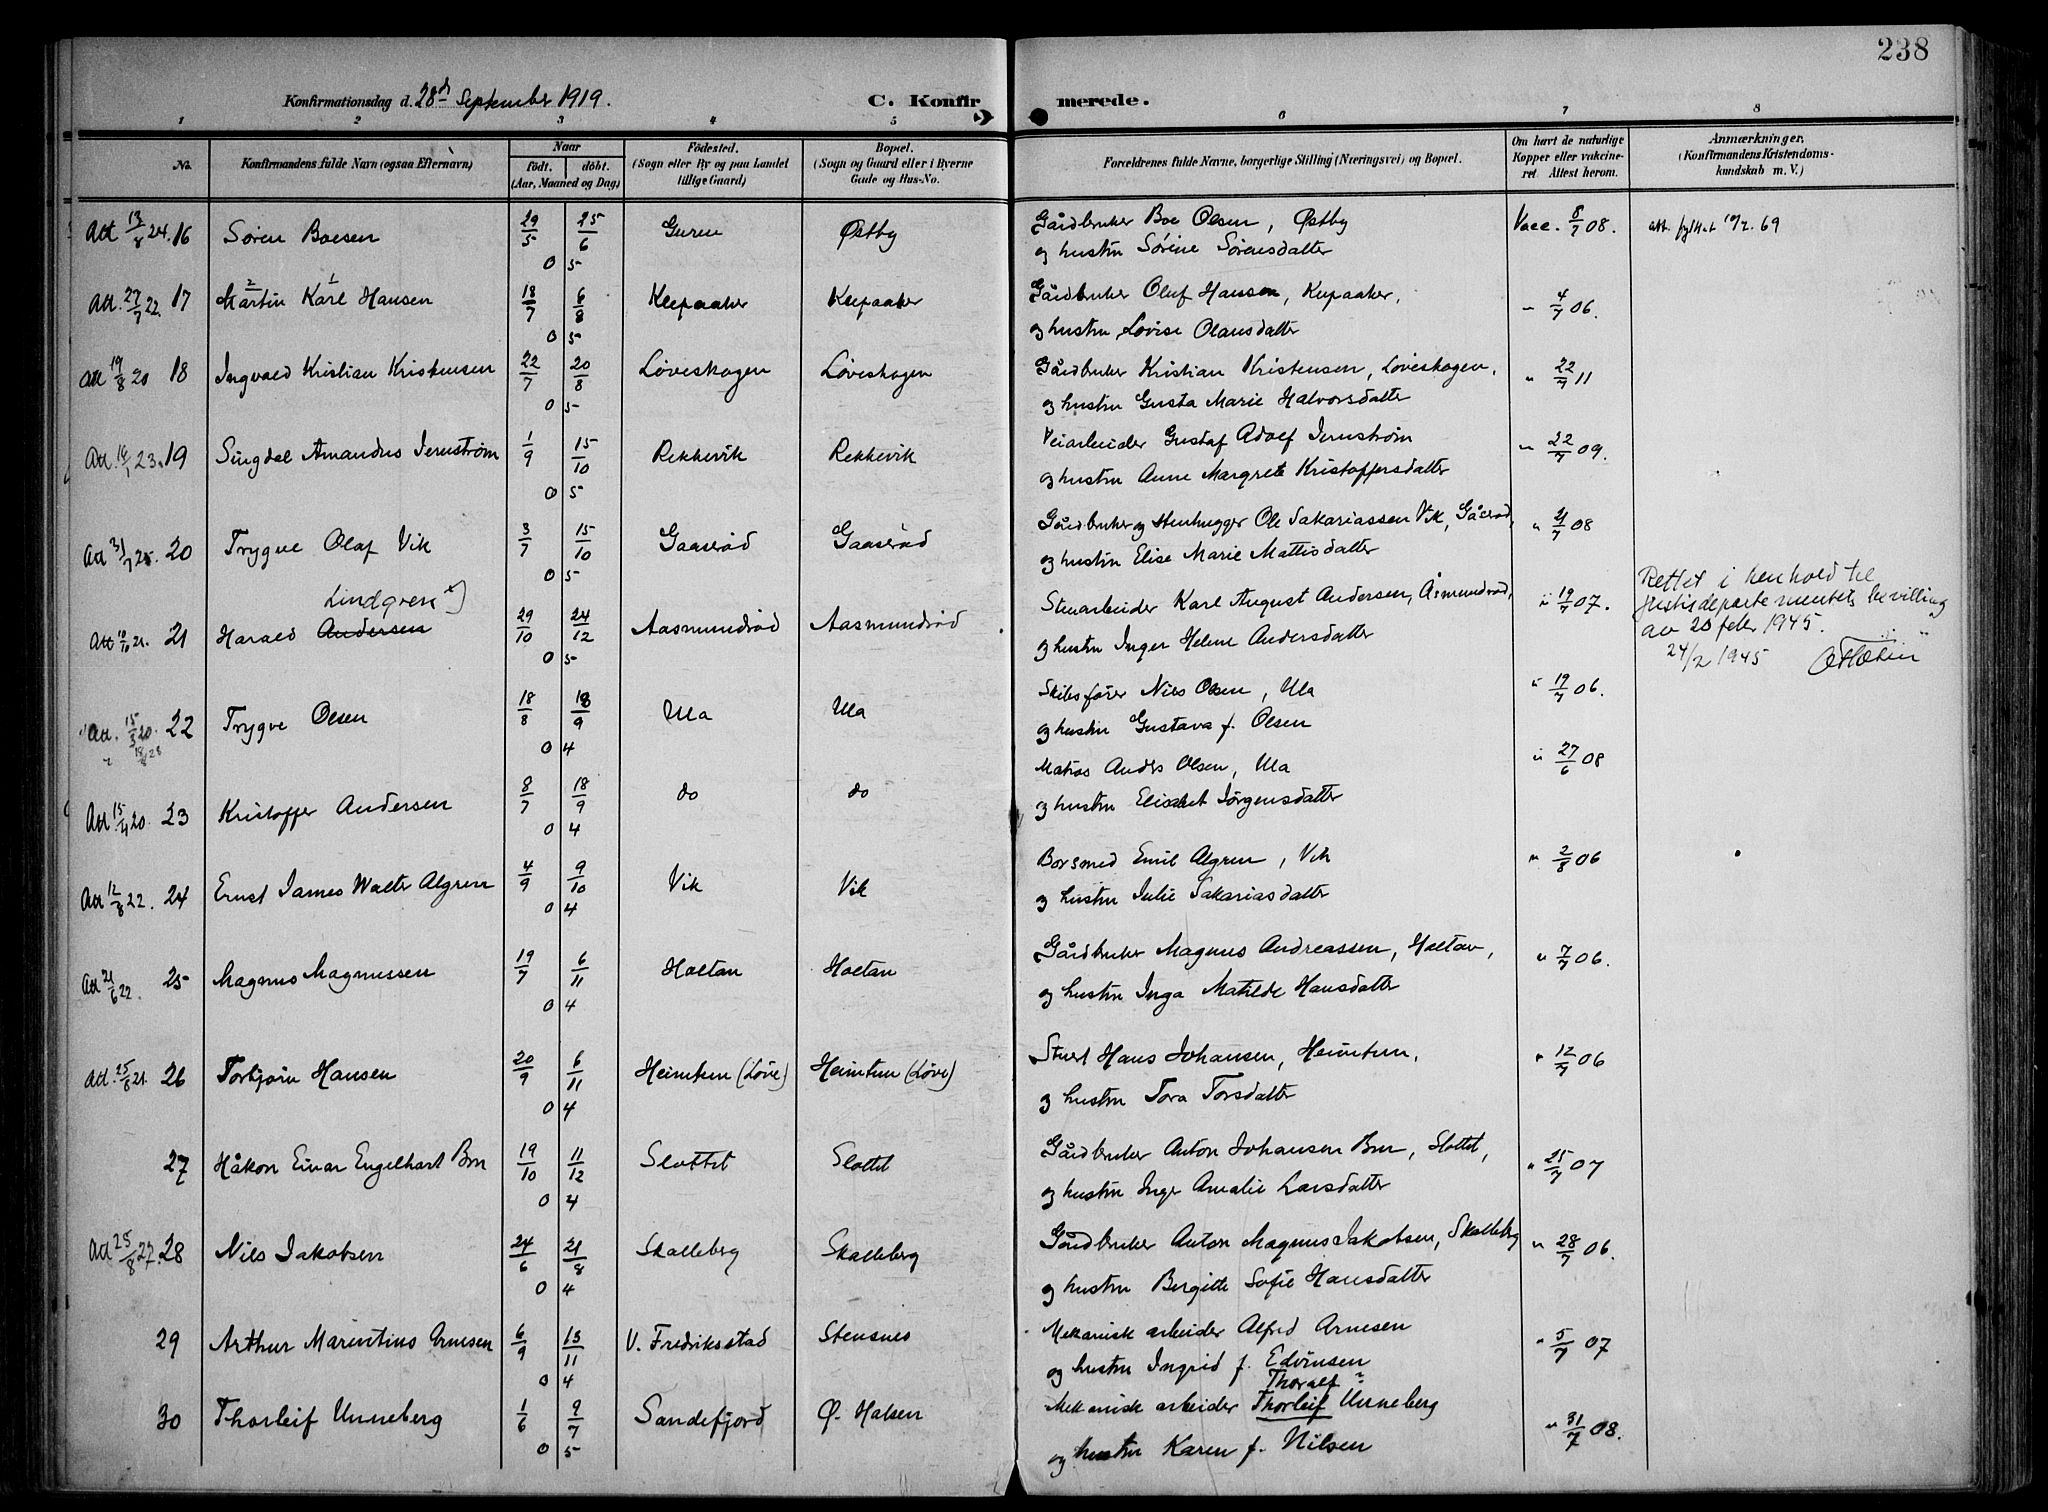 238
Konfirmationsdag d. 28d September 1919.
C. Konfirmerede.
1 2 3 4 5 6 7 8
No. Konfirmandens fulde Navn (ogsaa Efternavn) Naar født. døbt. (Aar, Maaned og Dag) Fødested. (Sogn eller By og paa Landet tillige Gaard) Bopæl. (Sogn og Gaard eller i Byerne Gade og Hus-No. Forældrenes fulde Navne, borgerlige Stilling (Næringsvei) og Bopæl. Om havt de naturlige Kopper eller vakcineret. Attest herom. Anmærkninger. (Konfirmandens Kristendomskundskab m. V.)
Att 13/8 24. 16 Søren Boesen 29/5 25/6 Guren Østby Gårdbruker Boe Olsen, Østby Vacc. 8/7 08. att.
0 5 og hustru Sørine Sørensdatter
Att. 27/7 22. 17 2 Martin 1 Karl Hansen 18/7 6/8 Klepaaker Klepaaker Gårdbruker Oluf Hansen, Klepaaker, " 4/7 06.
0 5 og hustru Lovise Olausdatter
Att 19/8 20 18 Ingvald Kristian Kristensen 22/7 20/8 Løveskogen Løveskogen Gårdbruker Kristian Kristensen, Løveskogen, " 22/7 11
0 5 og hustru Gusta Marie Halvorsdatter
Att. 23. 19 Singdal Amandus Jernstrøm 1/9 15/10 Rekkevik Rekkevik Veiarbeider Gustaf Adolf Jernstrøm " 22/7 09.
0 5 og hustru Anne Margrete Kristoffersdatter
Att 31/7 25. 20 Trygve Olaf Vik 3/7 15/10 Gaaserød Gaaserød Gårdbruker og Stenhugger Ole Sakariassen Vik, Gåserød, " 21/7 08
0 5 og hustru Elise Marie Mattisdatter
Lindgren x)
Att 10/10 21. 21 Harald Andersen 29/10 24/12 Aasmundrød Aasmundrød Stenarbeider Karl August Andersen, Åsmundrød, " 19/7 07. Rettet i henhold til
Justisdepartementets bevilling
av 20 febr 1945.
24/2 1945
0 5 og hustru Inger Helene Andersdatter
Att. 15/3 20. 22 Trygve Olsen 18/8 18/9 Ula Ula Skibsfører Nils Olsen, Ula " 19/7 06.
0 4 og hustru Gustava f. Olsen
Att 15/4 20. 23 Kristoffer Andersen 8/7 18/9 do do Matros Anders Olsen, Ula " 27/6 08
0 4 og hustru Elisabet Jørgensdatter
Att 12/8 22. 24 Ernst James Walter Algren 4/9 9/10 Vik Vik Borsmed Emil Algren, Vik " 2/8 06
0 4 og hustru Julie Sakariasdatter
Att 21/6 22. 25 Magnus Magnussen 19/7 6/11 Holtan Holtan Gårdbruker Magnus Andreassen, Holtan, " 7/7 06.
0 4 og hustru Inga Matilde Hansdatter
Att. 25/8 21. 26 Torbjørn Hansen 20/9 6/11 Heimtun (Løve) Heimtun (Løve) Stuert Hans Johansen, Heimtun, " 12/7 06
0 4 og hustru Tora Torsdatter
27 Håkon Einar Engelhart Bru 19/10 11/12 Slottet Slottet Gårdbruker Anton Johansen Bru, Slottet, " 25/7 07
0 4 og hustru Inger Amalie Larsdatter
Att 25/8 27. 28 Nils Jakobsen 24/6 21/8 Skalleberg Skalleberg Gårdbruker Anton Magnus Jakobsen, Skalleberg " 28/7 06.
0 4 og hustru Bergitte Sofie Hansdatter
29 Arthur Marentius Arnesen 6/9 15/11 V. Fredriksstad Stensnes Mekanisk arbeider Alfred Arnesen " 5/7 07
0 4 og hustru Ingrid f. Edvinsen
Thoralf ?
30 Thorleif Unneberg 1/6 9/7 Sandefjord Ø. Halsen Mekanisk arbeider Thorleif Unneberg " 31/7 08.
0 5 og hustru Karen f. Nilsen